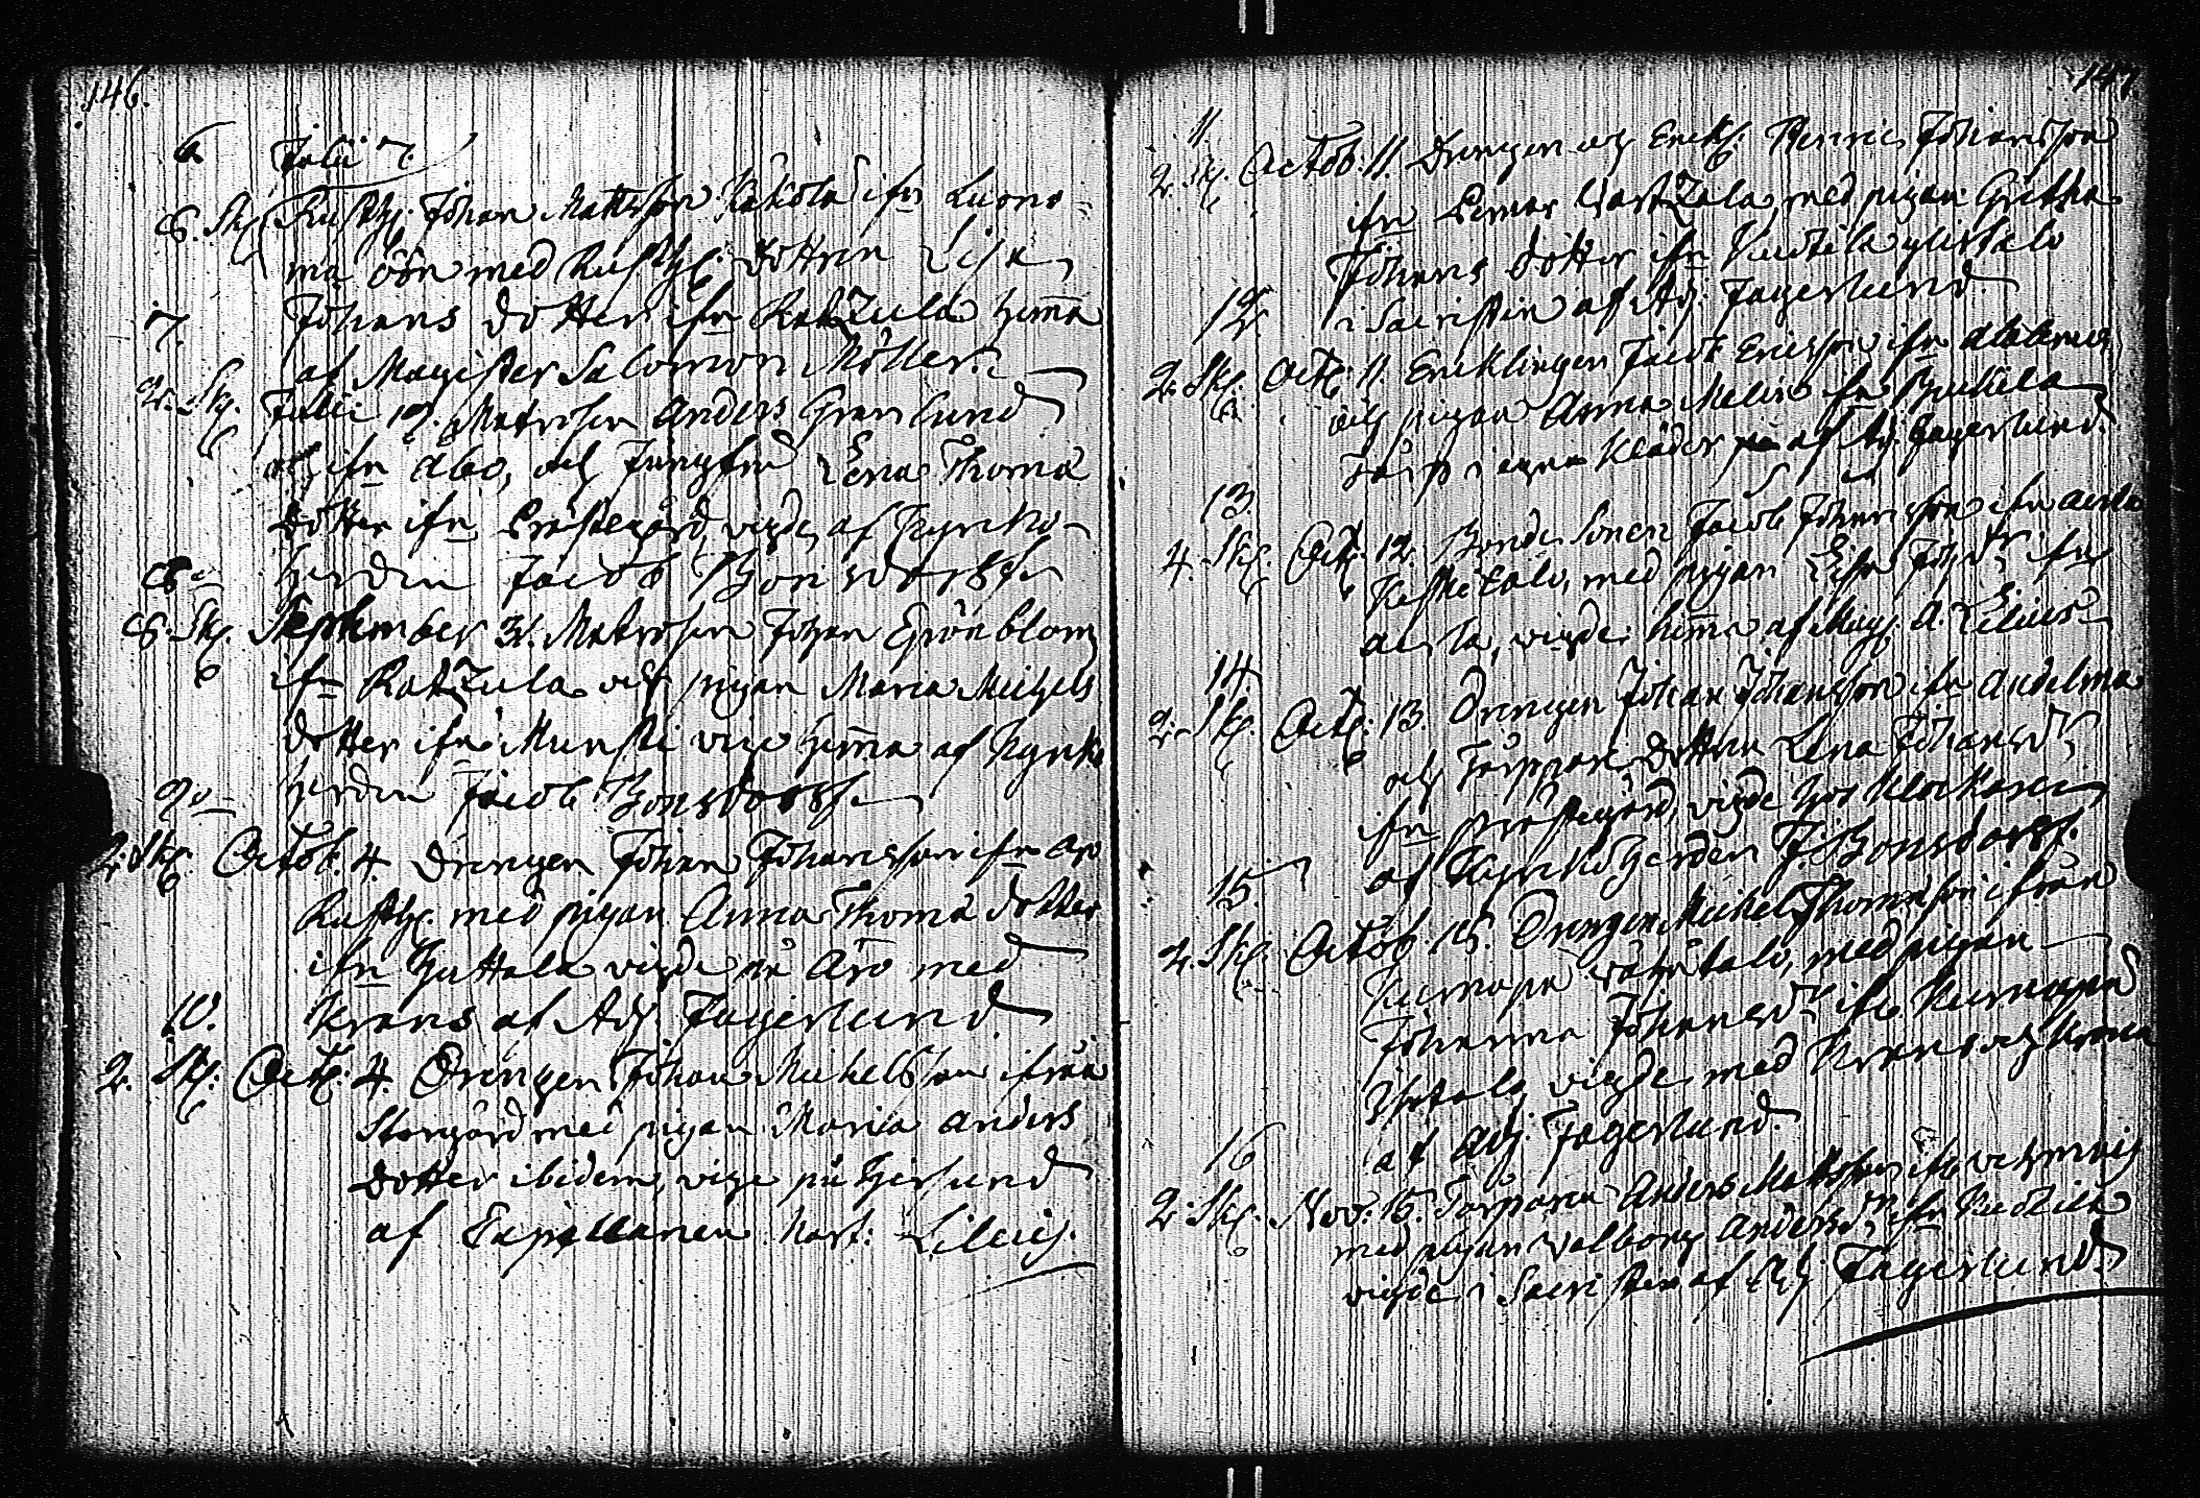 146.
6 Julii 7.
8. Sk. Rusth: Johan Mattsson Kakola ifn Luono-
ma öön med Rusth: dottren Lisa
7. Johans dotter ifn Katzula hema
af Magister Salomon Möller.
2. Sk. Julii 19. Matrosen Anders Granlund
ifn Abo, och Jungfru Lena Thoma
dotter ifn Prästegård, vigde af Kyrko-
8. herden Jacob Bonsdorff
8. Sk. September 31. Matrosen Johan Grönblom
ifn Katzula och pigan Maria Michels
dotter ifn Munsti vige hema af Kyrko
9. herden Jacob Bonsdorff
2. Sk. Octob. 4. Drengen Johan Johansson ifn Aro
Rusth: med pigan Anna Thoma dotter
ifn Huttala vigde på Aro med
10. Krans af Adj. Fagerlund
2. Sk. Oct: 4. Drengen Johan Michelsson ifrån
Storgård med pigan Maria Anders
dotter ibidem, vige på
af Capellanen Lilius.
147.
11.
2. Sk. Octob: 11. Drengen och Henric Johansson
ifn Pemar med pigan Gretha
Johans dotter ifn Kudila
12. i Sacristian af Adj. Fagerlund
2. Sk. Oct: 11. Enklingen Jacob Ericsson ifn
och pigan Anna ifn
i egna kläder af Adj. Fagerlund.
13.
4. Sk. Oct: 12. Bonde Sonen Jacob Johansson ifn
Keskitalo, med pigan Lisa Joh: dr ifn
vigde hema af Mag: A. Lilius
14.
2. Sk. Oct: 13. Drengen Johan Johansson ifn Andelma
och Torppare dottren Lena Johansdr
ifn Prästegård, vigde hos Klockaren
af Kyrkoherden J. Bonsdorff.
15.
2. Sk. Octob. 15. Drengen Michel Thomasson ifrån
Kurnapa med pigan
Johanna Johansdr ifn Kurnapa
Ylistalo, vigde med Krans och Krona
af Adj. Fagerlund.
16
2. Sk. Nov: 15. Torparen Anders Mattsson ifn
med pigan Valborg Andersdr ifn Kudila
vigde i Sacristian af Adj. Fagerlund